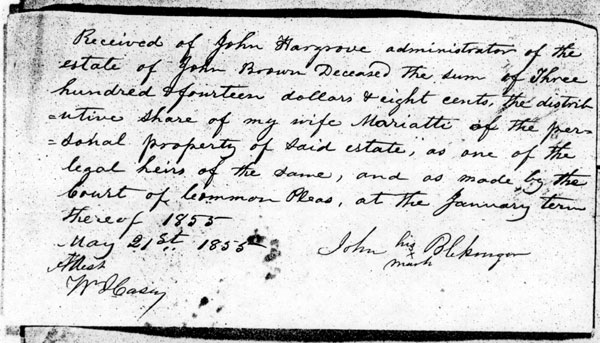 Received of John Hargrove administrator of the
estate of John Brown Deceased the sum of Three
hundred & fourteen dollars & eight cents, the distrib-
=utive share of my wife Mariatti of the per-
=sonal property of said estate, as one of the
legal heirs of the same, and as made by the
Court of Common Pleas, at the January term
thereof 1855
May 21st. 1855
John his x mark
Attest
Wm Casey